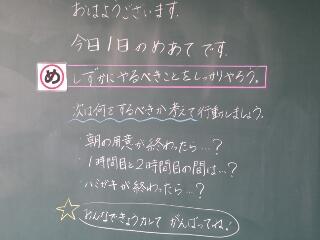 おはようございます.
今日1日のめあてです.
め しずかにやるべきことをしっかりやろう。
次は何をするべきか考えて行動しましょう。
・朝の用意が終わったら…?
・1時間目と2時間目の間は…?
・ハミガキが終わったら…?
みんなできょう力して がんばってね!